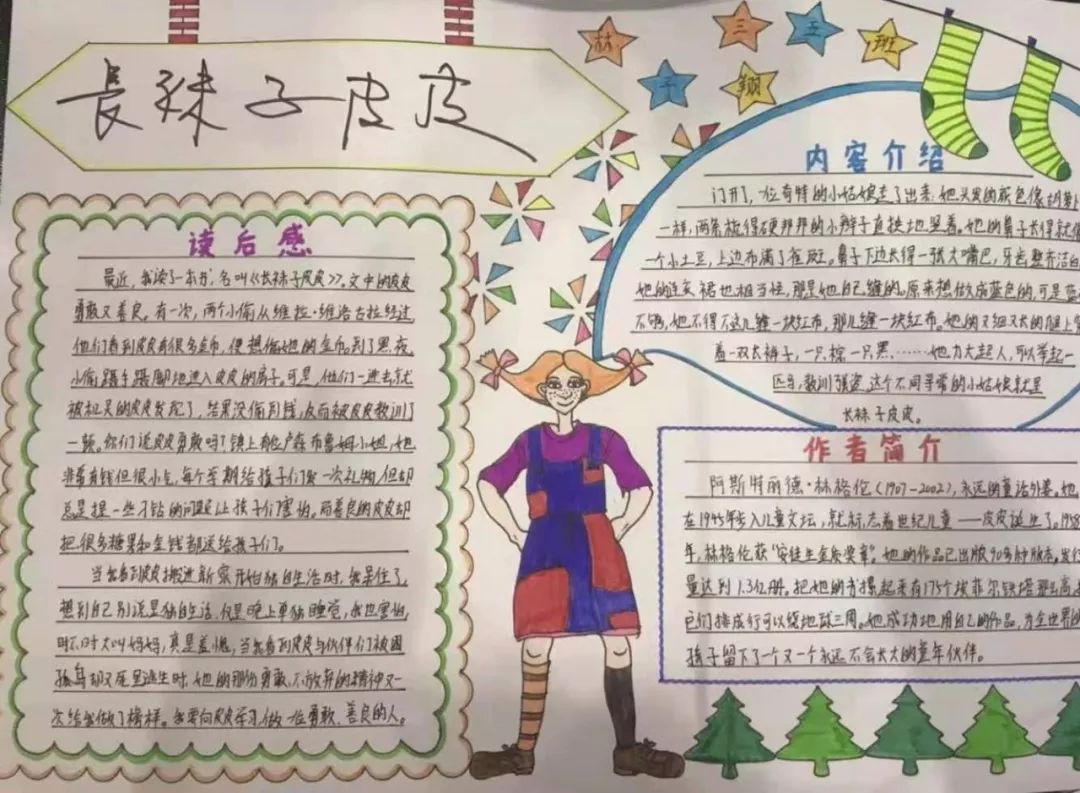 長袜子皮皮
林三五班
子翔
读后感
最近,我读了一本书,名叫《长袜子皮皮》。文中的皮皮
勇敢又善良。有一次,两个小偷从维拉·维洛古拉经过,
他们看到皮皮有很多金币,便想偷她的金币。到了黑夜,
小偷蹑手蹑脚地进入皮皮的房子。可是,他们一进去就
被机灵的皮皮发现了,结果没偷到钱,反而被皮皮教训了
一顿。你们说皮皮勇敢吗?镇上有位卢森布鲁姆小姐,她
非常有钱但很小气,每个学期给孩子们发一次礼物,但却
总是提一些刁钻的问题让孩子们害怕。而善良的皮皮却
把很多糖果和金钱都送给孩子们。
当我看到皮皮搬进新家开始独自生活时,我呆住了,
想到自己别说是独自生活,仅是晚上单独睡觉,我也害怕,
时不时大叫妈妈,真是羞愧,当我看到皮皮与伙伴们被困
孤岛却又死里逃生时,她的那份勇敢、不放弃的精神又一
次给我做了榜样。我要向皮皮学习,做一位勇敢、善良的人。
内容介绍
门开了,一位奇特的小姑娘走了出来:她头发的颜色像胡萝卜
一样,两条梳得硬邦邦的小辫子直挺挺地竖着。她的鼻子长得就像
一个小土豆,上边布满了雀斑。鼻子下边长得一张大嘴巴,牙齿整齐洁白
她的连衣裙也相当怪,那是她自己缝的。原来想做成蓝色的,可是蓝
不够,她不得不这儿缝一块红布,那儿缝一块红布。她的又细又长的腿上穿
着一双长裤子,一只棕一只黑,……她力大超人,可以举起一
匹马,教训强盗,这个不同寻常的小姑娘就是
长袜子皮皮。
作者简介
阿斯特丽德·林格伦(1907-2002),永远的童话外婆。她
在1945年步入儿童文坛,就标志着世纪儿童——皮皮诞生了。1958
年,林格伦获“安徒生金质奖章”。她的作品已出版90多种版本,发行
量达到1.3亿册,把她的书摞起来有175个埃菲尔铁塔那么高,
它们排成行可以绕地球三周。她成功地用自己的作品,为全世界的
孩子留下了一个又一个永远不会长大的童年伙伴。